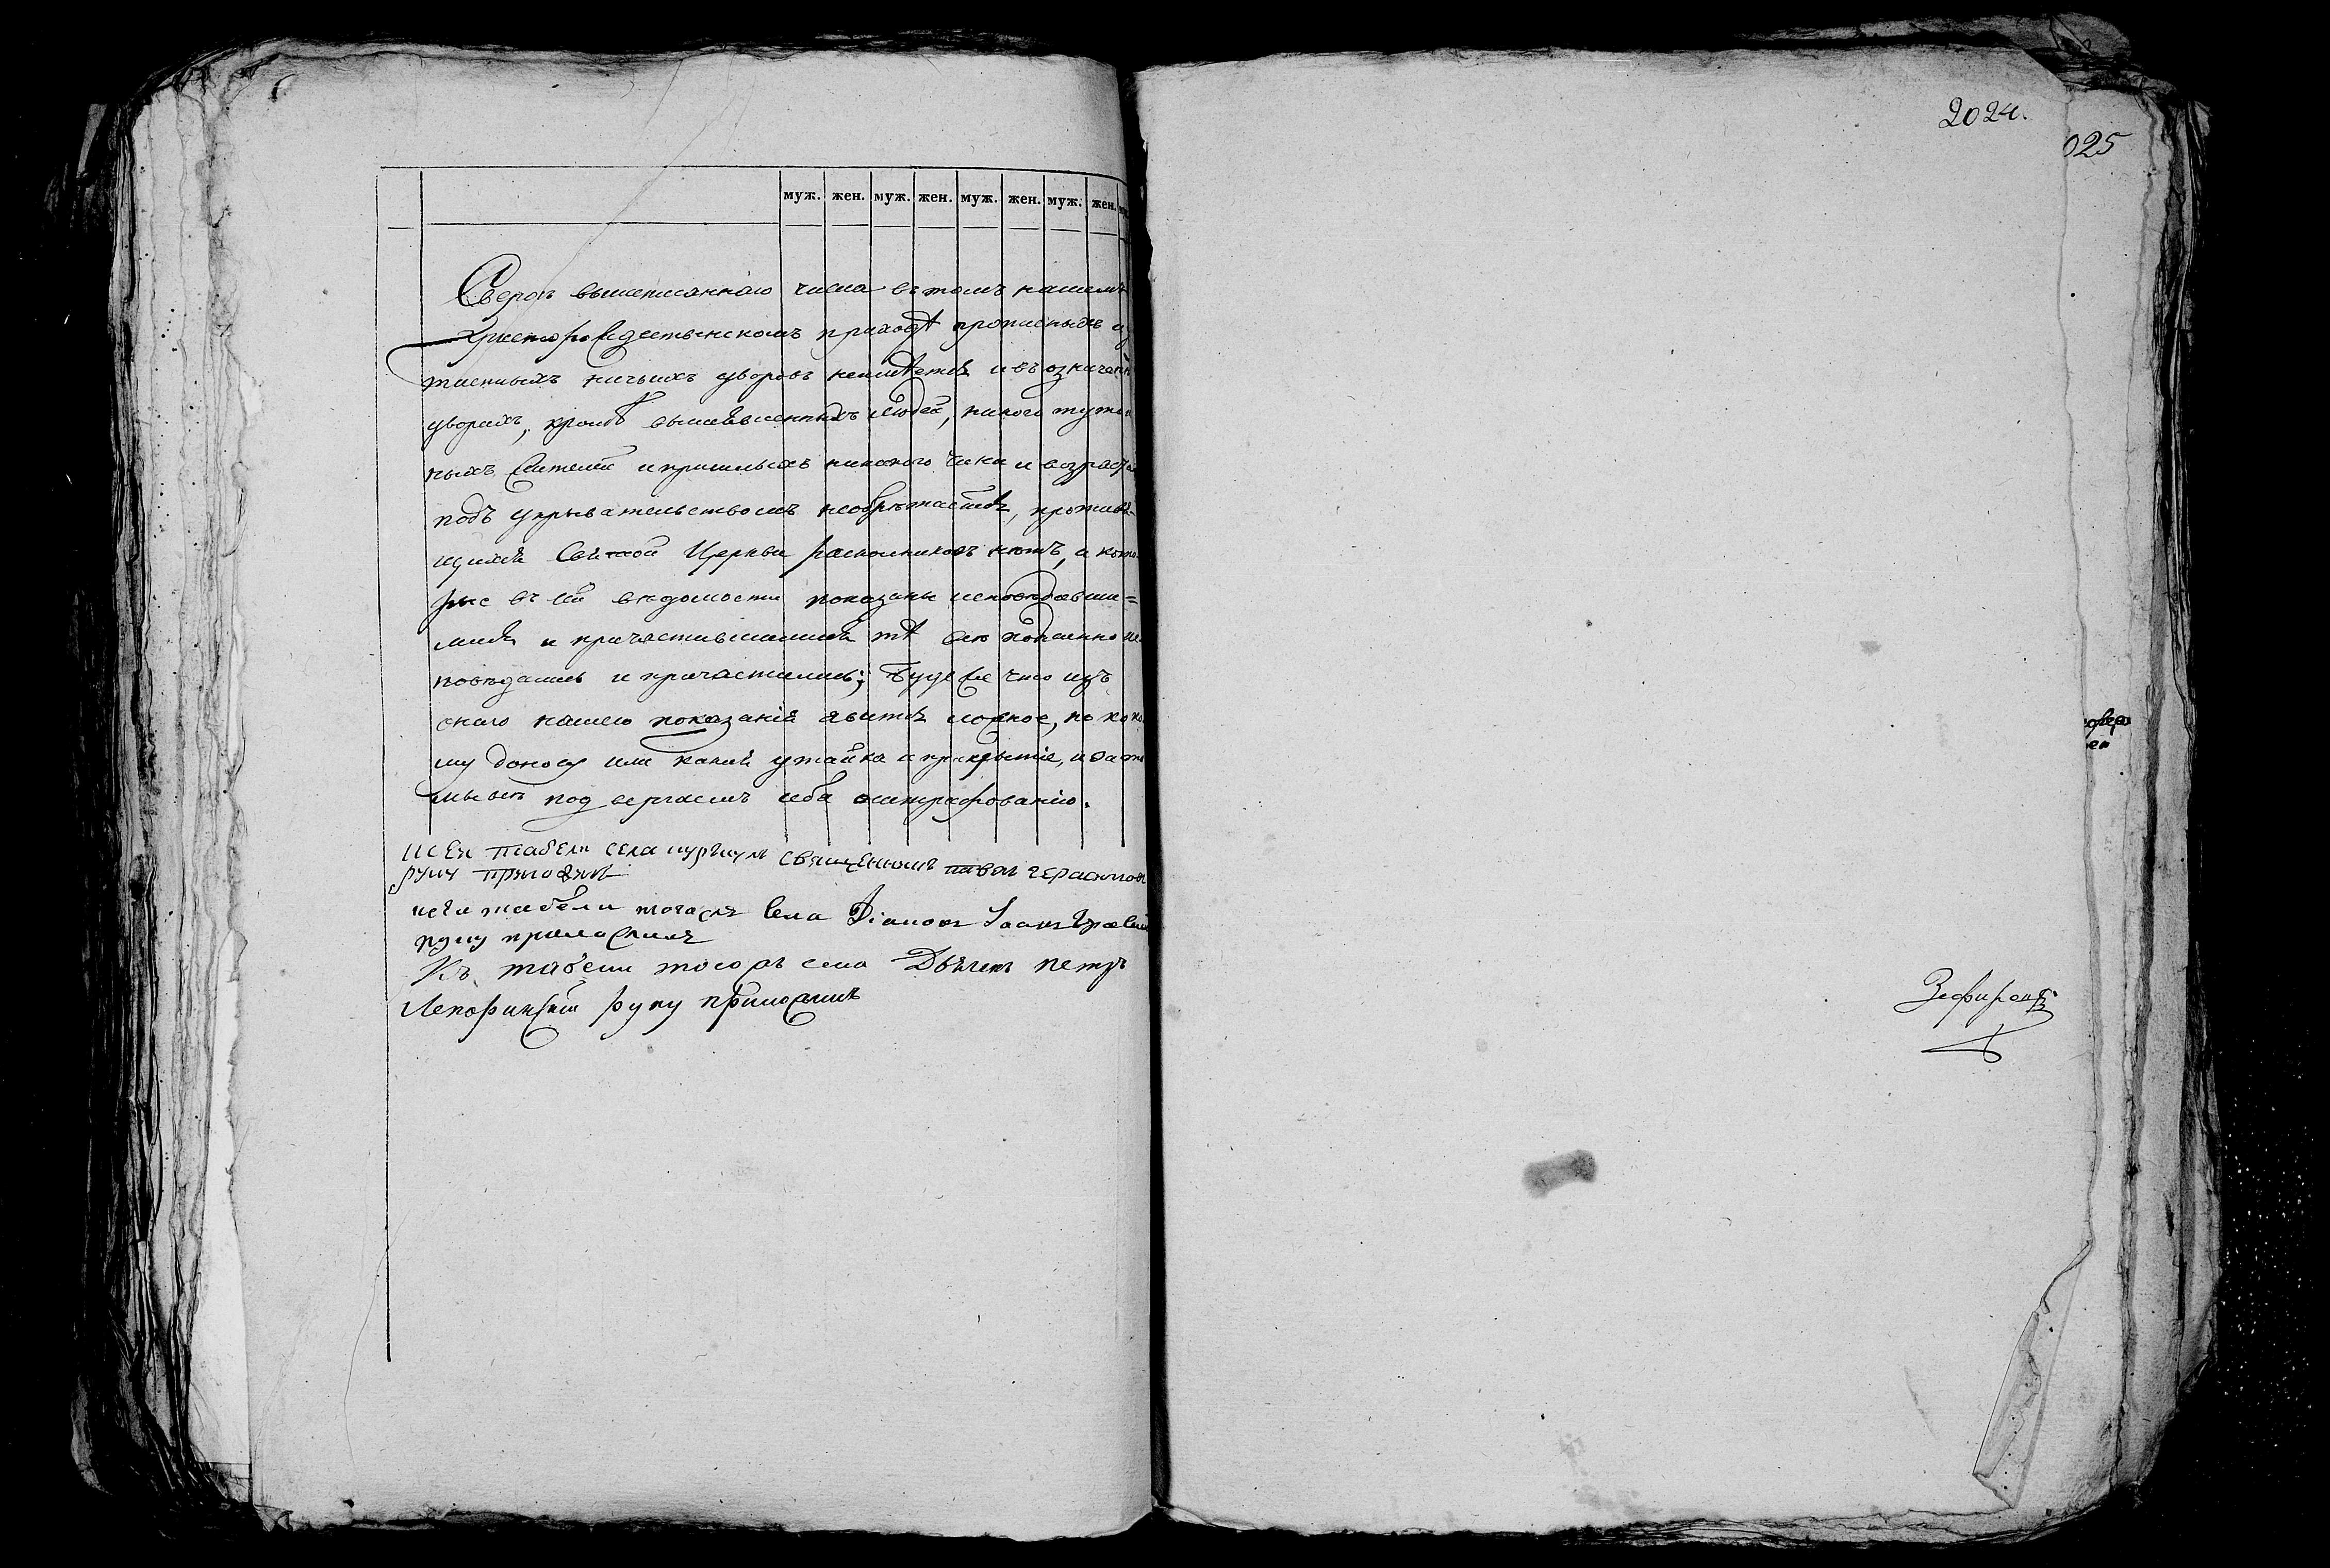 2024.
025
муж. жен. муж. жен. муж. жен. муж. жен.
Сверхъ вышеписаннаго числа въ томъ нашемъ
Христорождественскомъ приходѣ прописныхъ и у
таенныхъ ничьихъ дворовъ неимѣется и въ означен
дворахъ, кромѣ людей, никого
ныхъ жителей и пришлыхъ никакого чина и возраста
подъ укрывательствомъ необрѣтается, противя-
щихся Святой Церкви раскольниковъ нѣтъ, а кото
рые въ сей вѣдомости показаны исповѣдавши=
мися и причастившимися тѣ исповедно ис
повѣдались и причастились; Буде же что изъ
онаго нашего показанія явится ложное, по како
му доносу или какая утайка и прикрытіе, и за то
мы подвергаемъ себя оштрафованію.
села священникъ павелъ герасимовъ
руку приложилъ
табели тогожъ села Діаконъ Іоаннъ
руку приложилъ
Къ табели тогожъ села Дьячекъ петръ
Лепоринскій руку приложилъ